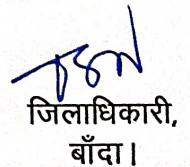 जिलाधिकारी,
बाँदा।